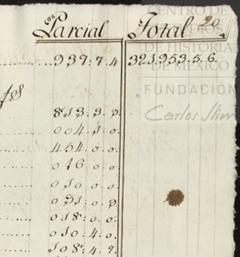 Parcial Total 20
937:7.4 321.953.5.6.
813:3.9.
004.1.0.
454.0.0.
046.0.0.
010.0.0.
031.0.9.
018:0.0.
010.4.0.
108:4.7.
CENTRO DE
ESTUDIOS
DE HISTORIA
DE MÉXICO
FUNDACIÓN
Carlos Slim